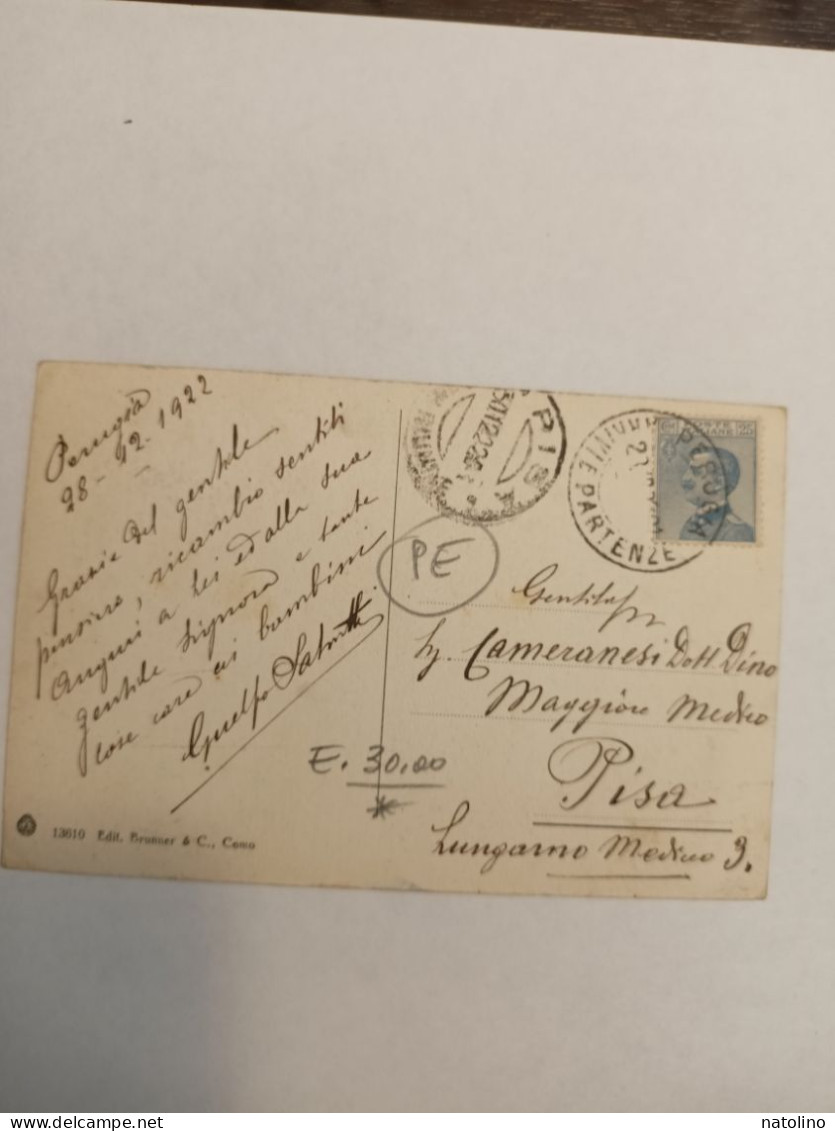 Perugia
28-12-1922
Grazie del gentile
pensiero, ricambio sentiti
Auguri a Lei ed alla sua
gentile Signora e tante
cose care ai bambini
Guelfo
13610 Edit. Brunner & C., Como
PISA
30.12.22
PERUGIA
ARRIVI E PARTENZE
POSTE ITALIANE
25
PE
Cameranesi Dott Dino
Maggiore Medico
Pisa
Lungarno Mediceo 3.
E. 30,00
natolino